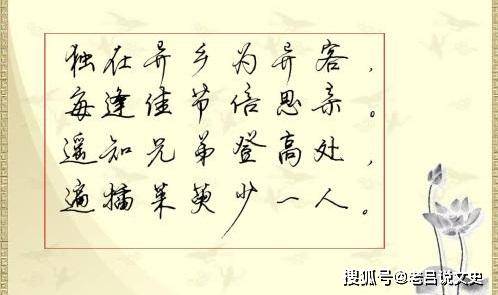 独在异乡为异客，
每逢佳节倍思亲。
遥知兄弟登高处，
遍插茱萸少一人。
搜狐号@老吕说文史